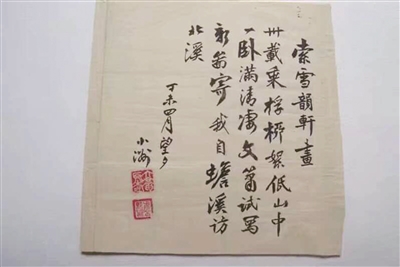 索雪韻軒畫
卅載乘桴絮低山中
一卧滿清凄文試寫
新寄我自蟾溪訪
北溪
丁未四月望夕
小